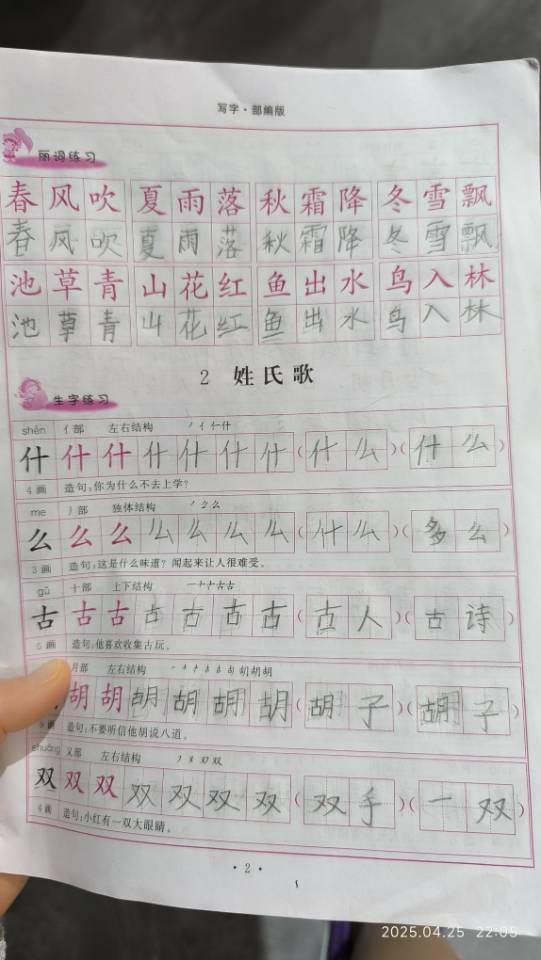 写字·部编版
丽词练习
春风吹 夏雨落 秋霜降 冬雪飘
春风吹 夏雨落 秋霜降 冬雪飘
池草青 山花红 鱼出水 鸟入林
池草青 山花红 鱼出水 鸟入林
2 姓氏歌
生字练习
shén 亻部 左右结构
什 什 什 什 什 什 什 (什么)(什么)
4画 造句:你为什么不去上学?
me 丿部 独体结构
么 么 么 么 么 么 么 (什么)(多么)
3画 造句:这是什么味道?闻起来让人很难受。
gǔ 十部 上下结构
古 古 古 古 古 古 古 (古人)(古诗)
5画 造句:他喜欢收集古玩。
月部 左右结构
胡 胡 胡 胡 胡 胡 (胡子)(胡子)
造句:不要听信他胡说八道。
shuāng 又部 左右结构
双 双 双 双 双 双 双 (双手)(一双)
4画 造句:小红有一双大眼睛。
·2·
2025.04.25 22:05